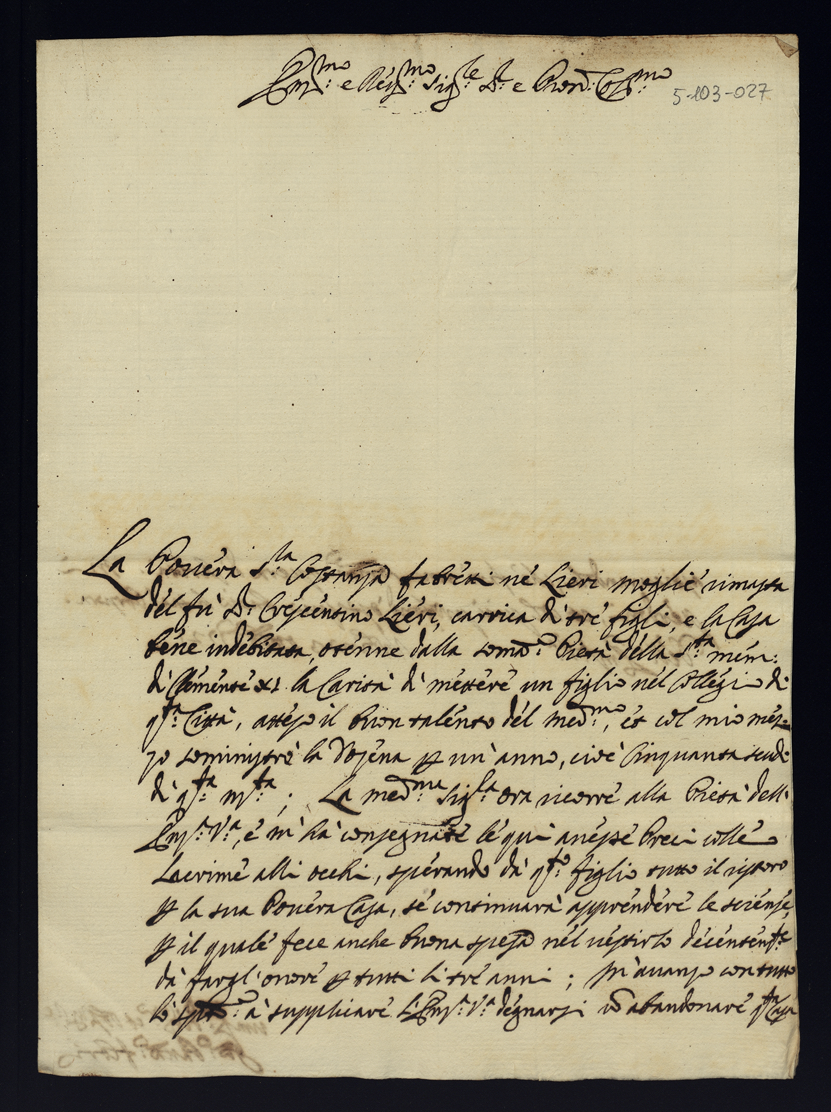 Em:mo e Re:mo Sig:re S:r e Pron: Col:mo
5-103-027
La Povera S:ra Costanza fabretti né Lieri moglie rimasta
del fù S:r Crescentino Lieri, carrica di tré figli, e la Casa
bene indebitata, otenne dalla som: Pietà della S:ta mem:
di Clemente XI la Carità di mettere un figlio nel Collegio di
q:ta Città, atteso il buon talento del med:mo, et col mio mez-
zo soministrò la Dozena p un'anno, cioè Cinquanta scudi
di q:ta m:ta; La med:ma Sig:ra ora ricorre alla Pietà dell'
Em:a V:ra, e m'hà consegnate le qui anesse Preci colle
Lacrime alli occhi, sperando dà q:to figlio tutto il ristoro
p la sua Povera Casa, se continuarà apprendere le scienze,
p il quale fece anche buona spesa nel vestirlo decentem:te
dà fargl'onore p tutti li tré anni; M'avanzo con tutto
lo à supplicare l'Em:a V:ra degnarsi abandonare q:ta Casa